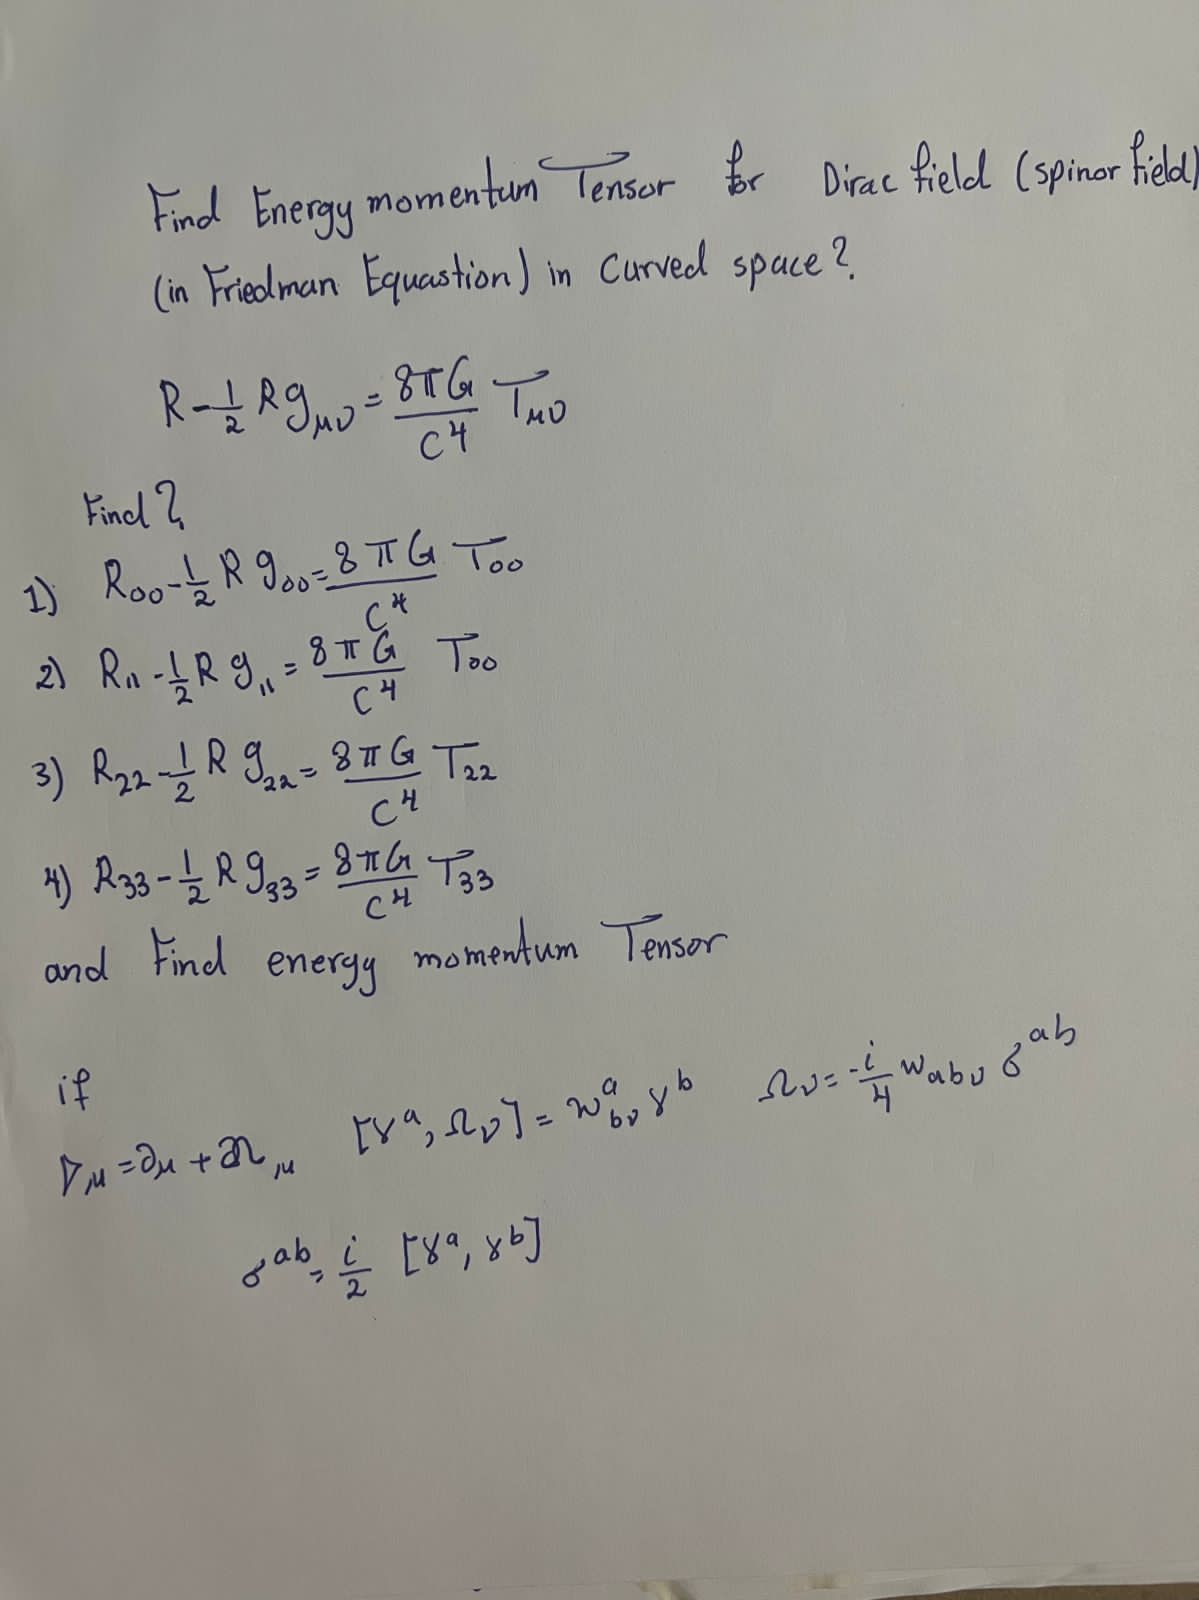 Find Energy momentum Tensor for Dirac field (spinor field)
(in Friedman Equastion) in Curved space?
R-1/2 Rgμν = 8πG/C^4 Tμν
Find?
1) R00-1/2 R g00 = 8πG/C^4 T00
2) R11-1/2 R g11 = 8πG/C^4 T00
3) R22-1/2 R g22 = 8πG/C^4 T22
4) R33-1/2 R g33 = 8πG/C^4 T33
and Find energy momentum Tensor
if
∇μ = ∂μ + Ωμ [γ^a, Ων] = w^a_bν γ^b Ων = -i/4 w_abν σ^ab
σ^ab = i/2 [γ^a, γ^b]